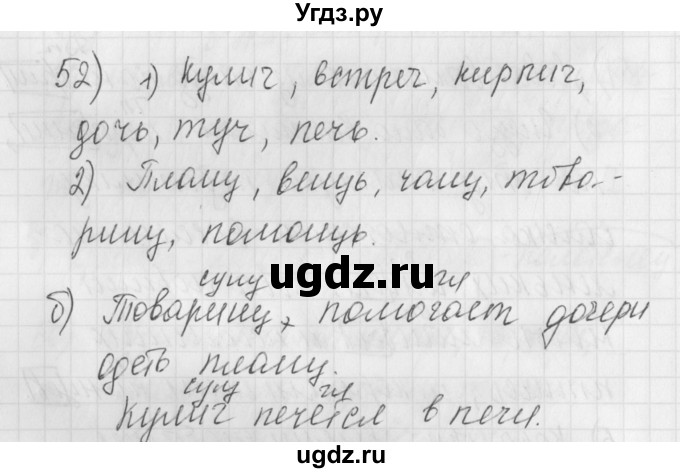 Угdz.ру
52) 1) Кулич, встреч, кирпич,
дочь, туч, печь.
2) Плащ, вещь, чащ, това-
рищ, помощь.
сущ гл
б) Товарищ помогает дочери
одеть плащ.
сущ гл
Кулич печется в печи.
ugdz.ru
ugdz.ru